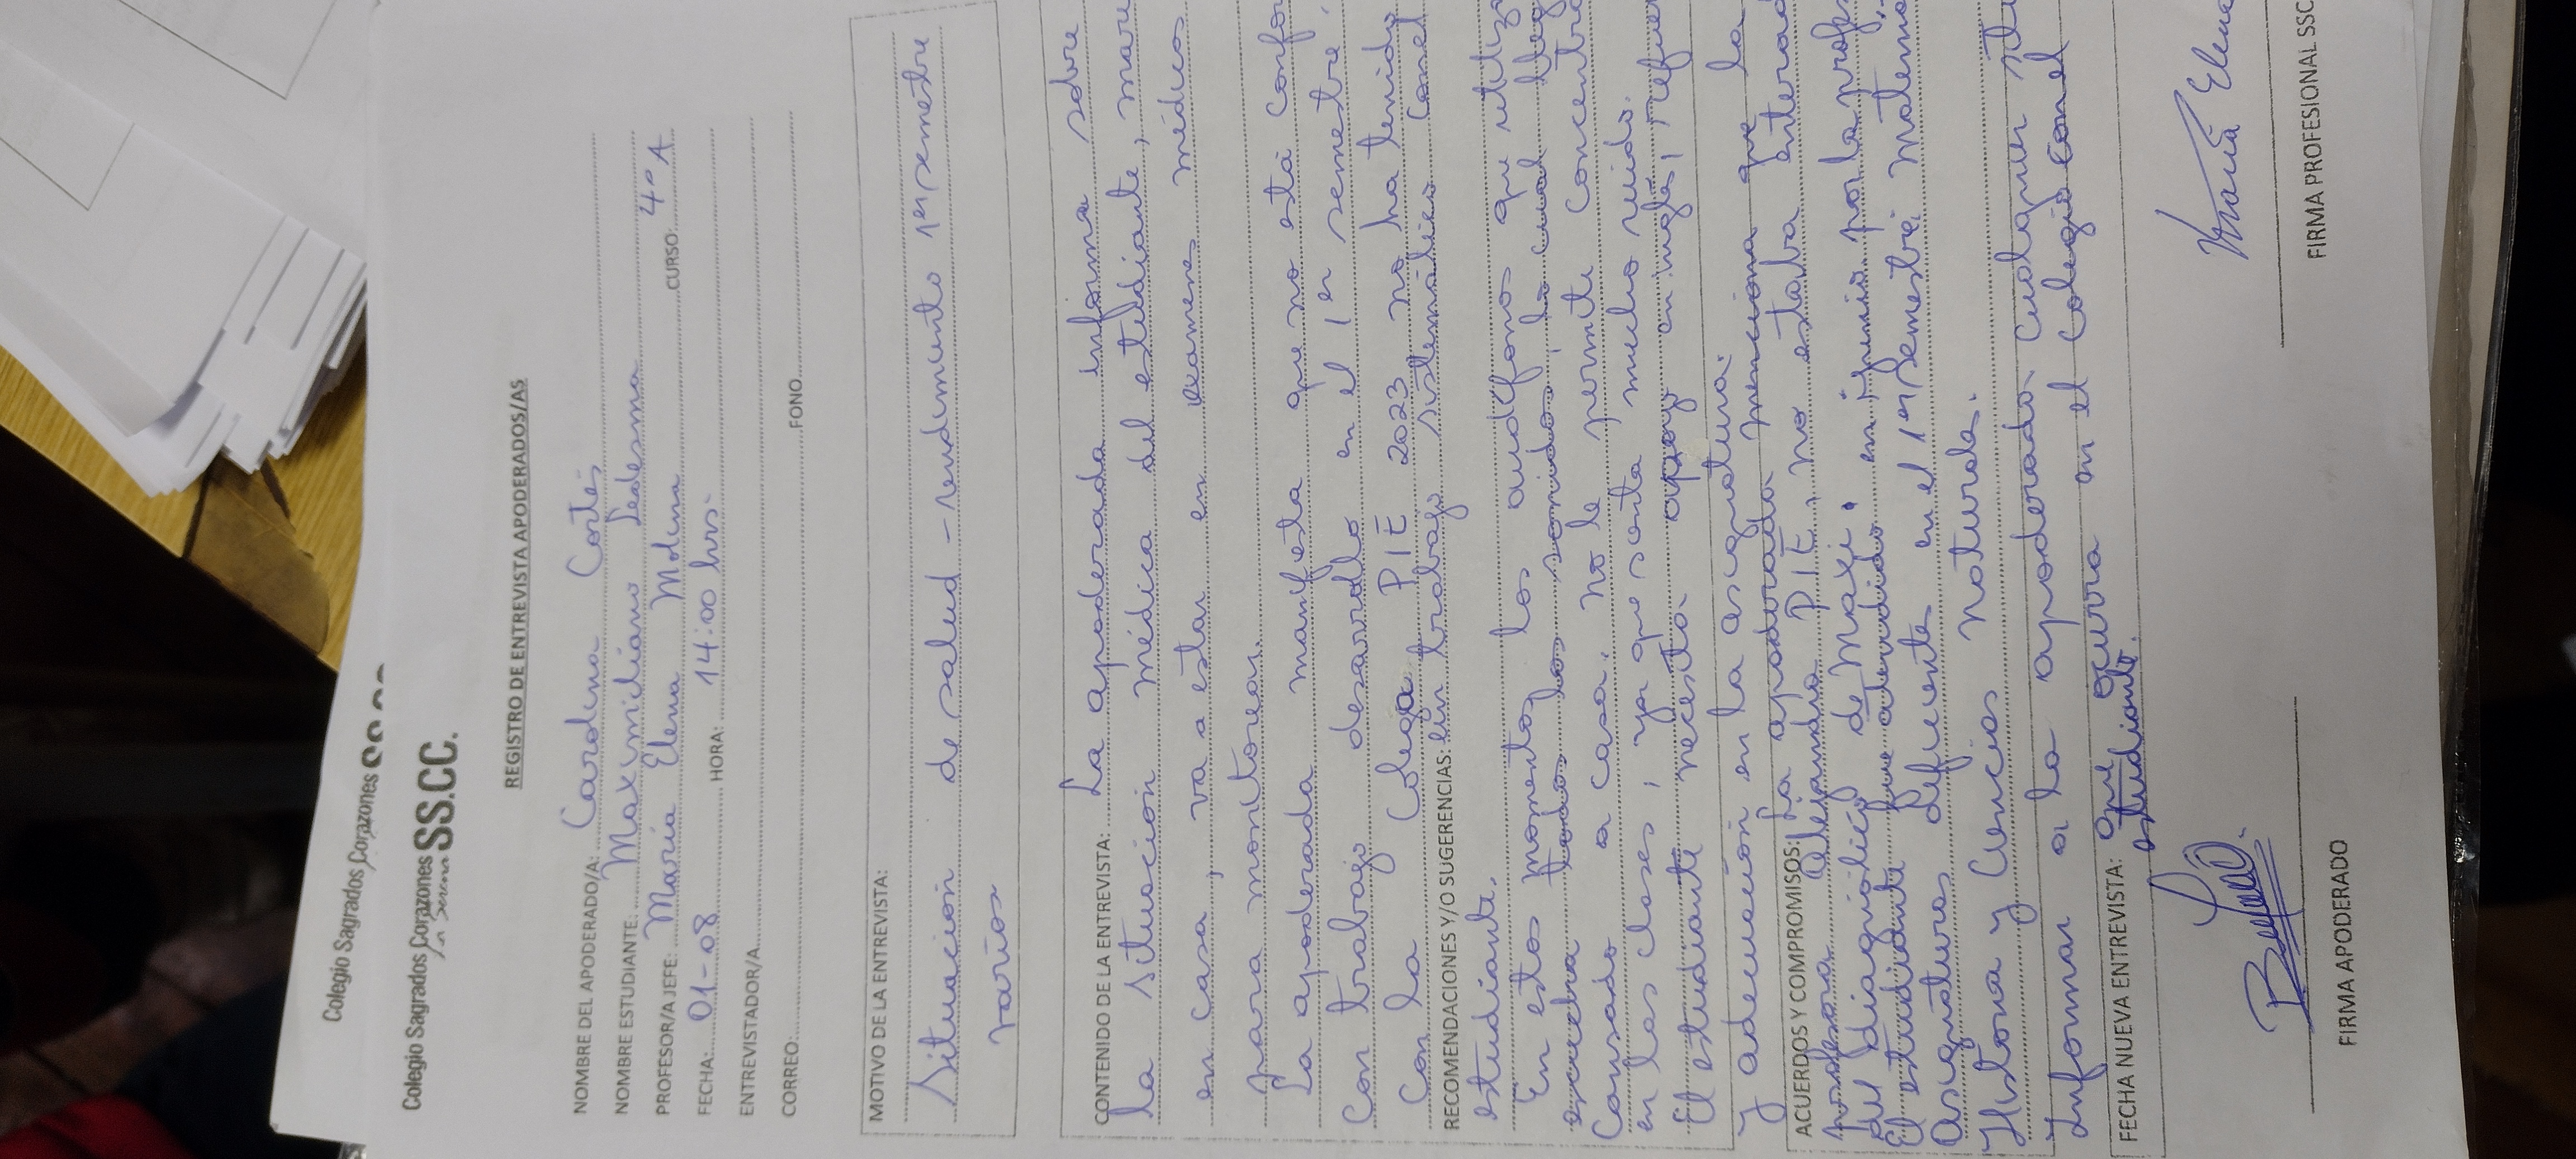 Colegio Sagrados Corazones
Colegio Sagrados Corazones SS.CC.
La Serena
REGISTRO DE ENTREVISTA APODERADOS/AS
NOMBRE DEL APODERADO/A: Carolina Cortés
NOMBRE ESTUDIANTE: Maximiliano Ledesma
PROFESOR/A JEFE: María Elena Molina CURSO: 4° A
FECHA: 01-08 HORA: 14:00 hrs.
ENTREVISTADOR/A
CORREO: FONO
MOTIVO DE LA ENTREVISTA:
Situación de salud - rendimiento 1er semestre
varios
CONTENIDO DE LA ENTREVISTA: La apoderada informa sobre
la situación médica del estudiante,
en casa, va a estar en exámenes médicos
para monitorear.
La apoderada manifesta que no está
con trabajo desarrollo en el 1er semestre.
Con la Colega PIE 2023 no ha tenido
RECOMENDACIONES Y/O SUGERENCIAS: un trabajo sistemático con el
estudiante.
En estos momentos los audífonos que
escucha todos los sonidos, lo cual
Cansado a casa. No le permite
en las clases, ya que sonta mucho ruido.
El estudiante necesita apoyo en inglés,
y adecuación en la asignatura.
ACUERDOS Y COMPROMISOS: La apoderada menciona que la
profesora Alejandra PIE, no estaba
del diagnóstico de Maxi. por la
El estudiante fue atendido
Asignaturas deficientes en el 1er Semestre:
Historia y Ciencias naturales.
Informar a la apoderada cualquier
que ocurra en el Colegio con el
FECHA NUEVA ENTREVISTA: estudiante.
FIRMA APODERADO
María Elena
FIRMA PROFESIONAL SSC